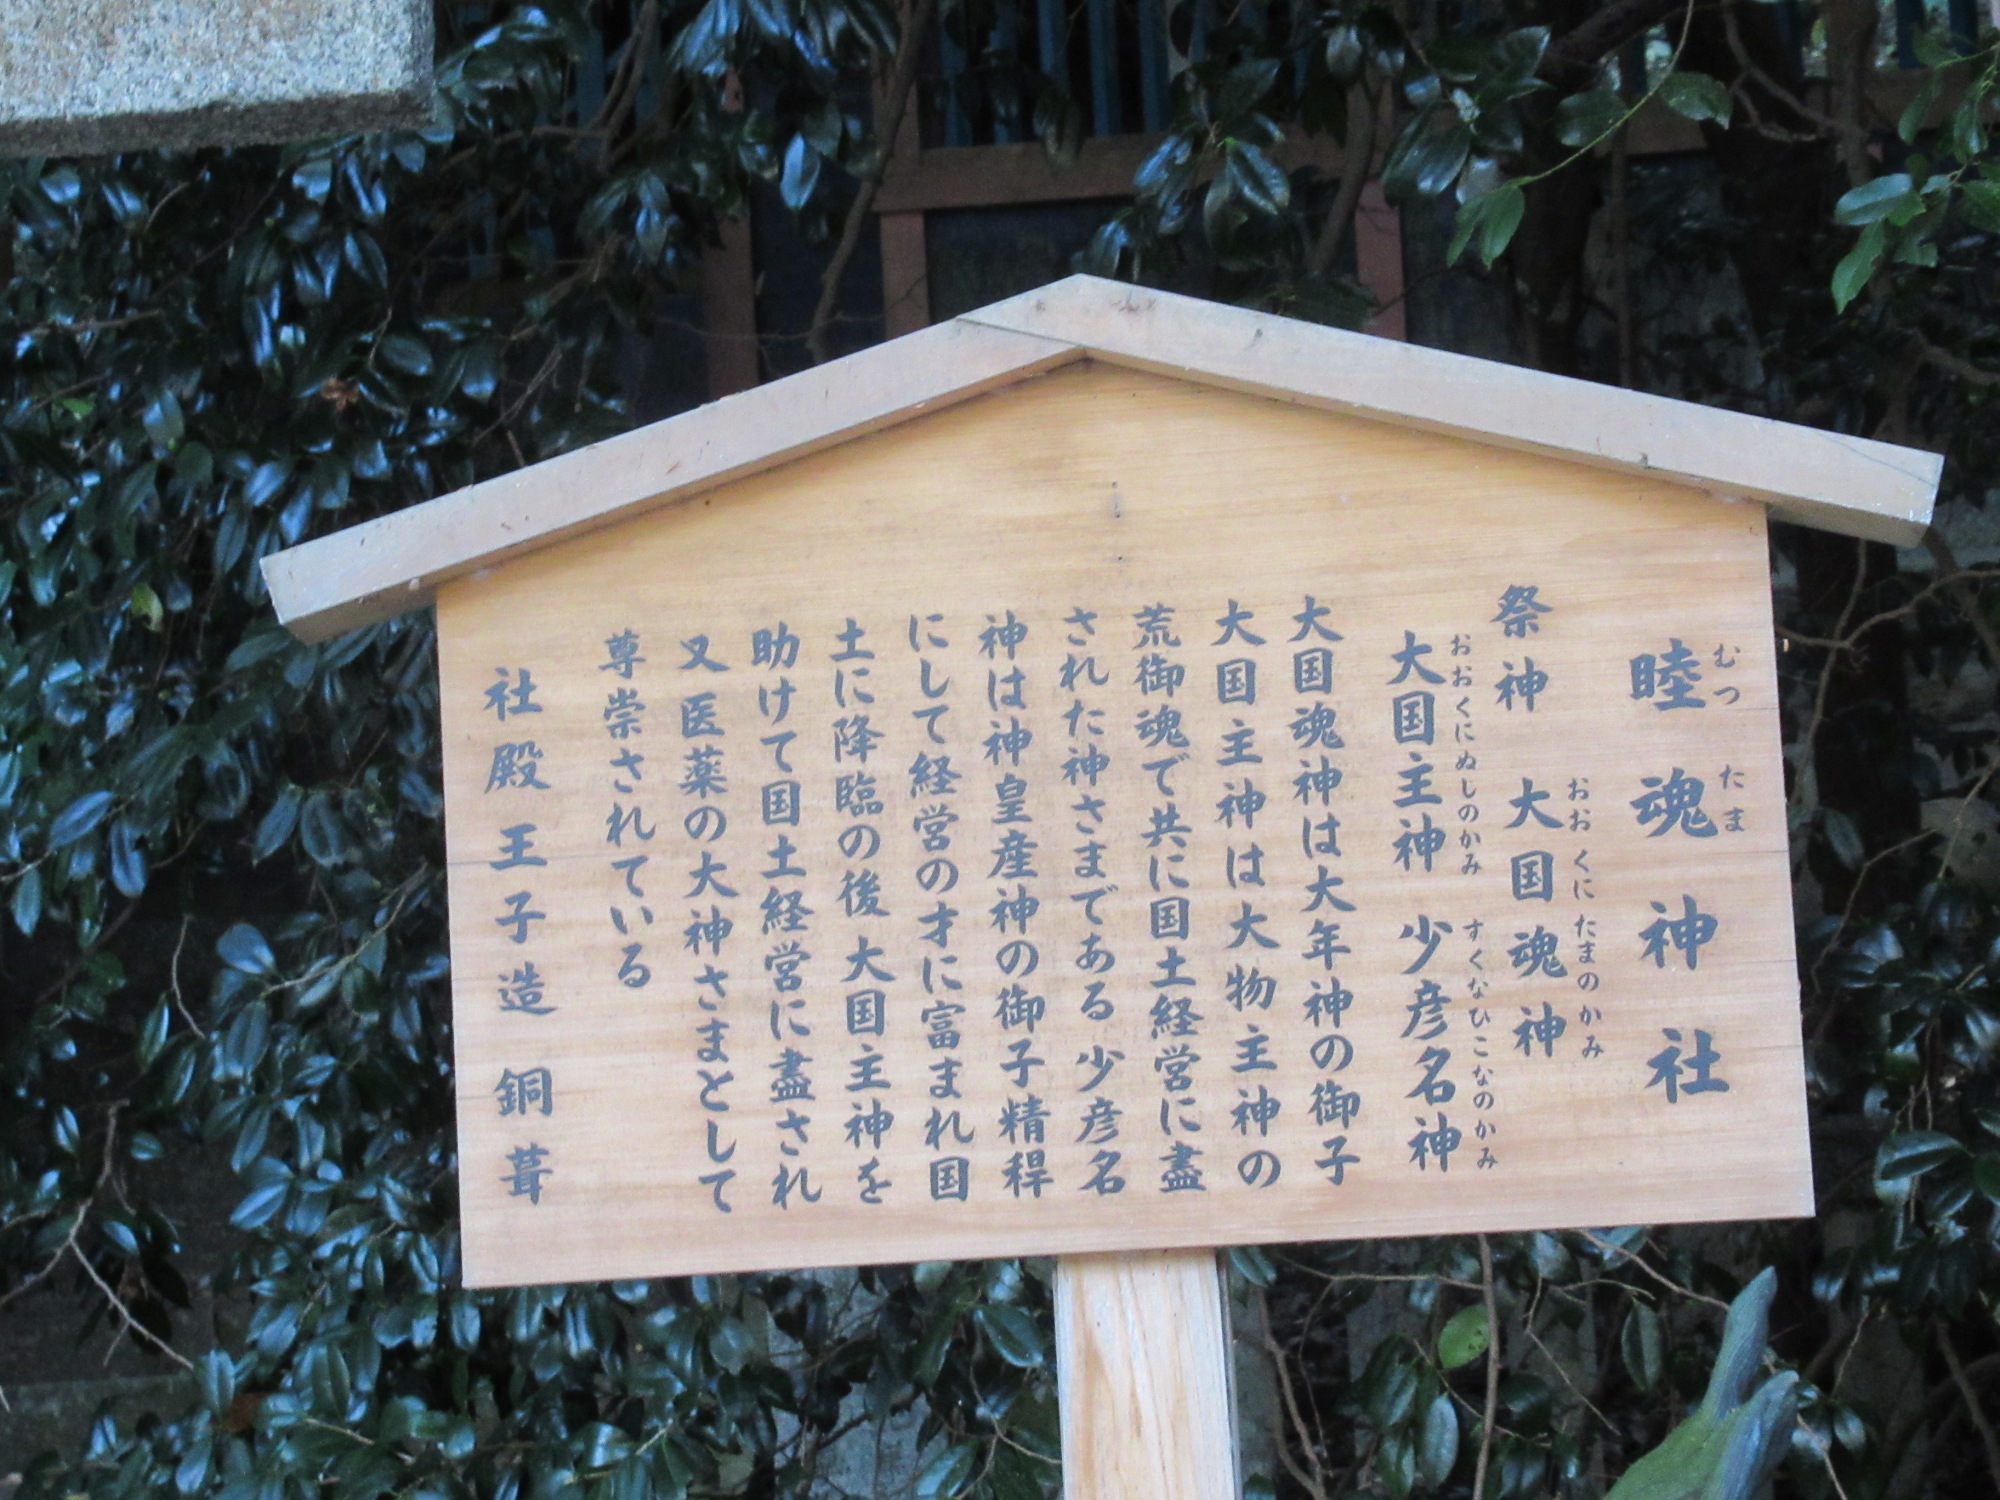 睦魂神社
むつたま
祭神 大国魂神
おおくにたまのかみ
大国主神 少彦名神
おおくにぬしのかみ すくなひこなのかみ
大国魂神は大年神の御子
大国主神は大物主神の
荒御魂で共に国土経営に盡
された神さまである 少彦名
神は神皇産神の御子精稈
にして経営の才に富まれ国
土に降臨の後大国主神を
助けて国土経営に盡され
又医薬の大神さまとして
尊崇されている
社殿王子造 銅葺